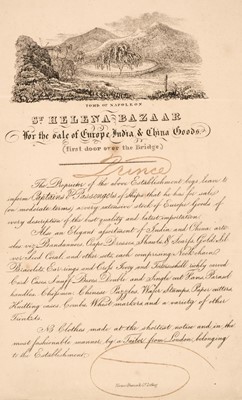 TOMB OF NAPOLEON
St HELENA BAZAAR
For the sale of Europe India & China Goods
(first door over the Bridge)
Prince
The Proprietor of the above Establishment begs leave to
inform Captains & Passengers of Ships that he has for sale
on moderate terms a very extensive stock of Europe Goods of
every description of the best quality and latest importation.
Also an Elegant assortment of Indian and China arti-
cles viz Dresses, Shawls & Scarfs Gold, Sil-
ver and Coral, and other sets, each comprising Neck chain
Bracelets Ear-rings and Ivory and Tortoiseshell richly carved
Card Cases Snuff Boxes Double and Single Fans, Parasol
handles Chessmen, Chinese Puzzles Wafer Stamps Paper cutters
Knitting cases Whist markers and a variety of other
Trinkets.
NB Clothes made at the shortest notice and in the
most fashionable manner by a Tailor from London belonging
to the Establishment.